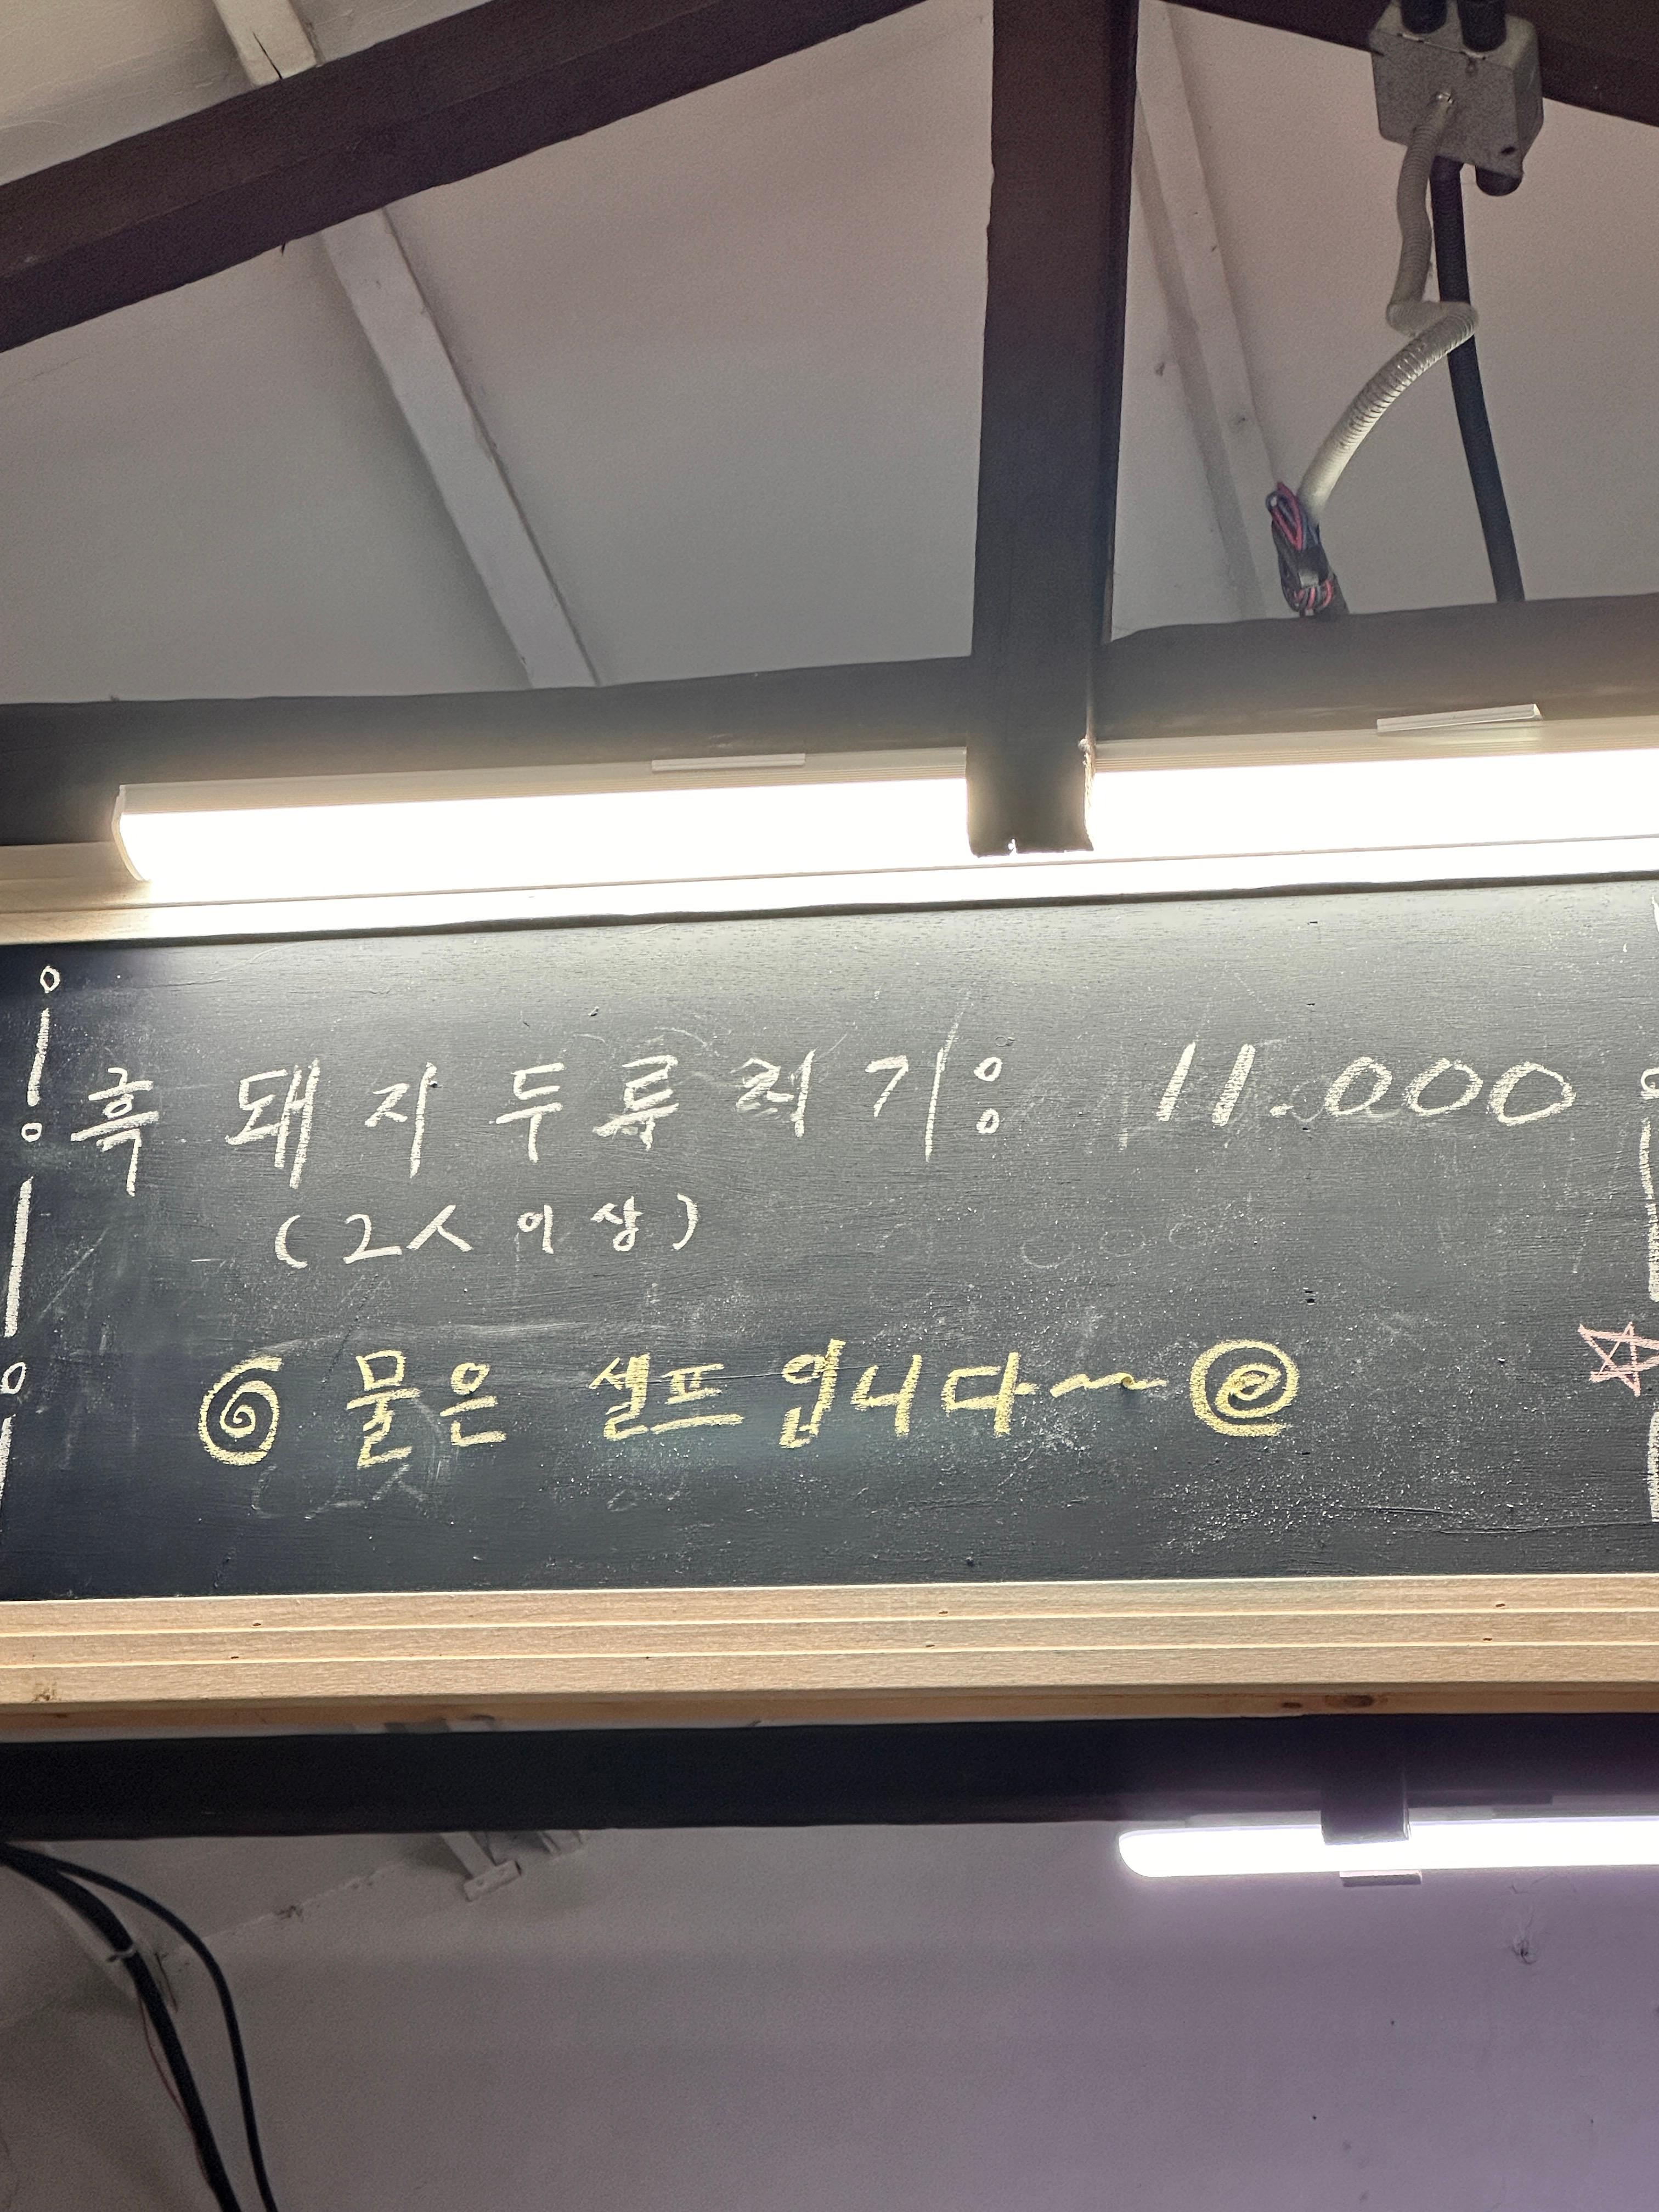 흑돼지두루치기: 11.000
(2人 이상)
물은 셀프입니다~